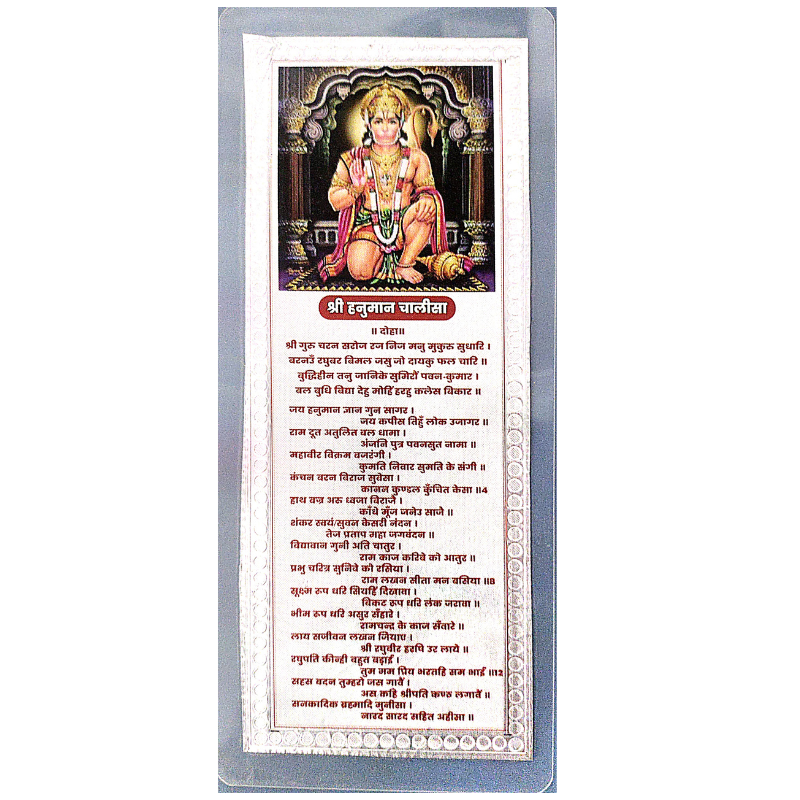 श्री हनुमान चालीसा
॥ दोहा॥
श्री गुरु चरन सरोज रज निज मनु मुकुरु सुधारि ।
बरनउँ रघुबर बिमल जसु जो दायकु फल चारि ॥
बुद्धिहीन तनु जानिके सुमिरौं पवन-कुमार ।
बल बुधि विद्या देहु मोहिं हरहु कलेस विकार ॥
जय हनुमान ज्ञान गुन सागर ।
जय कपीस तिहुँ लोक उजागर ॥
राम दूत अतुलित बल धामा ।
अंजनि पुत्र पवनसुत नामा ॥
महावीर विक्रम बजरंगी ।
कुमति निवार सुमति के संगी ॥
कंचन बरन विराज सुवेसा ।
कानन कुण्डल कुँचित केसा ॥4
हाथ वज्र अरु ध्वजा विराजै ।
काँधे मूँज जनेउ साजै ॥
शंकर स्वयं/सुवन केसरी नंदन ।
तेज प्रताप महा जगवंदन ॥
विद्यावान गुनी अति चातुर ।
राम काज करिवे को आतुर ॥
प्रभु चरित्र सुनिवे को रसिया ।
राम लखन सीता मन बसिया ॥8
सूक्ष्म रूप धरि सियहिं दिखावा ।
विकट रूप धरि लंक जरावा ॥
भीम रूप धरि असुर सँहारे ।
रामचन्द्र के काज सँवारे ॥
लाय सजीवन लखन जियाए ।
श्री रघुवीर हरषि उर लाये ॥
रघुपति कीन्ही बहुत बड़ाई ।
तुम मम प्रिय भरतहि सम भाई ॥12
सहस बदन तुम्हरो जस गावैं ।
अस कहि श्रीपति कण्ठ लगावैं ॥
सनकादिक ब्रह्मादि मुनीसा ।
नारद सारद सहित अहीसा ॥